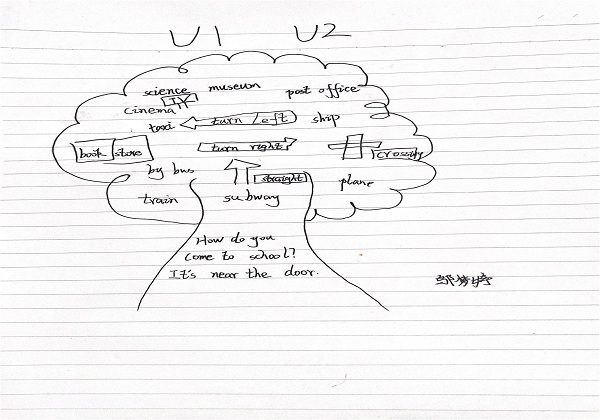 U1 U2
science museum post office
cinema
taxi turn left ship
book store turn right crossing
by bus straight plane
train subway
How do you
come to school?
It's near the door.